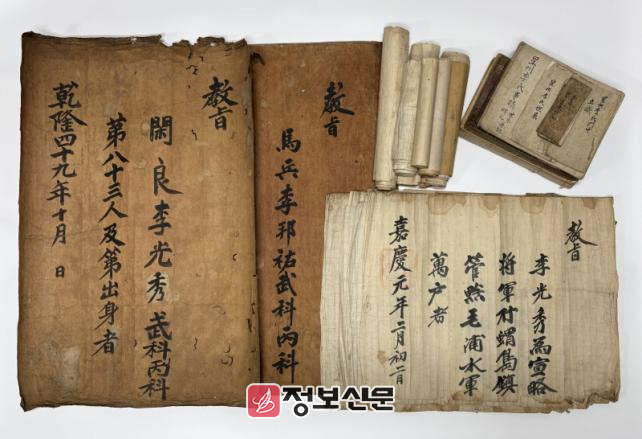 敎旨
閑良李光秀武科丙科
第八十三人及第出身者
乾隆四十九年十月 日
敎旨
馬兵李邦祐武科丙科
星州李氏
敎旨
李光秀爲宣略
將軍行蝟島鎭
管黔毛浦水軍
萬户者
嘉慶元年二月初二日
정보신문